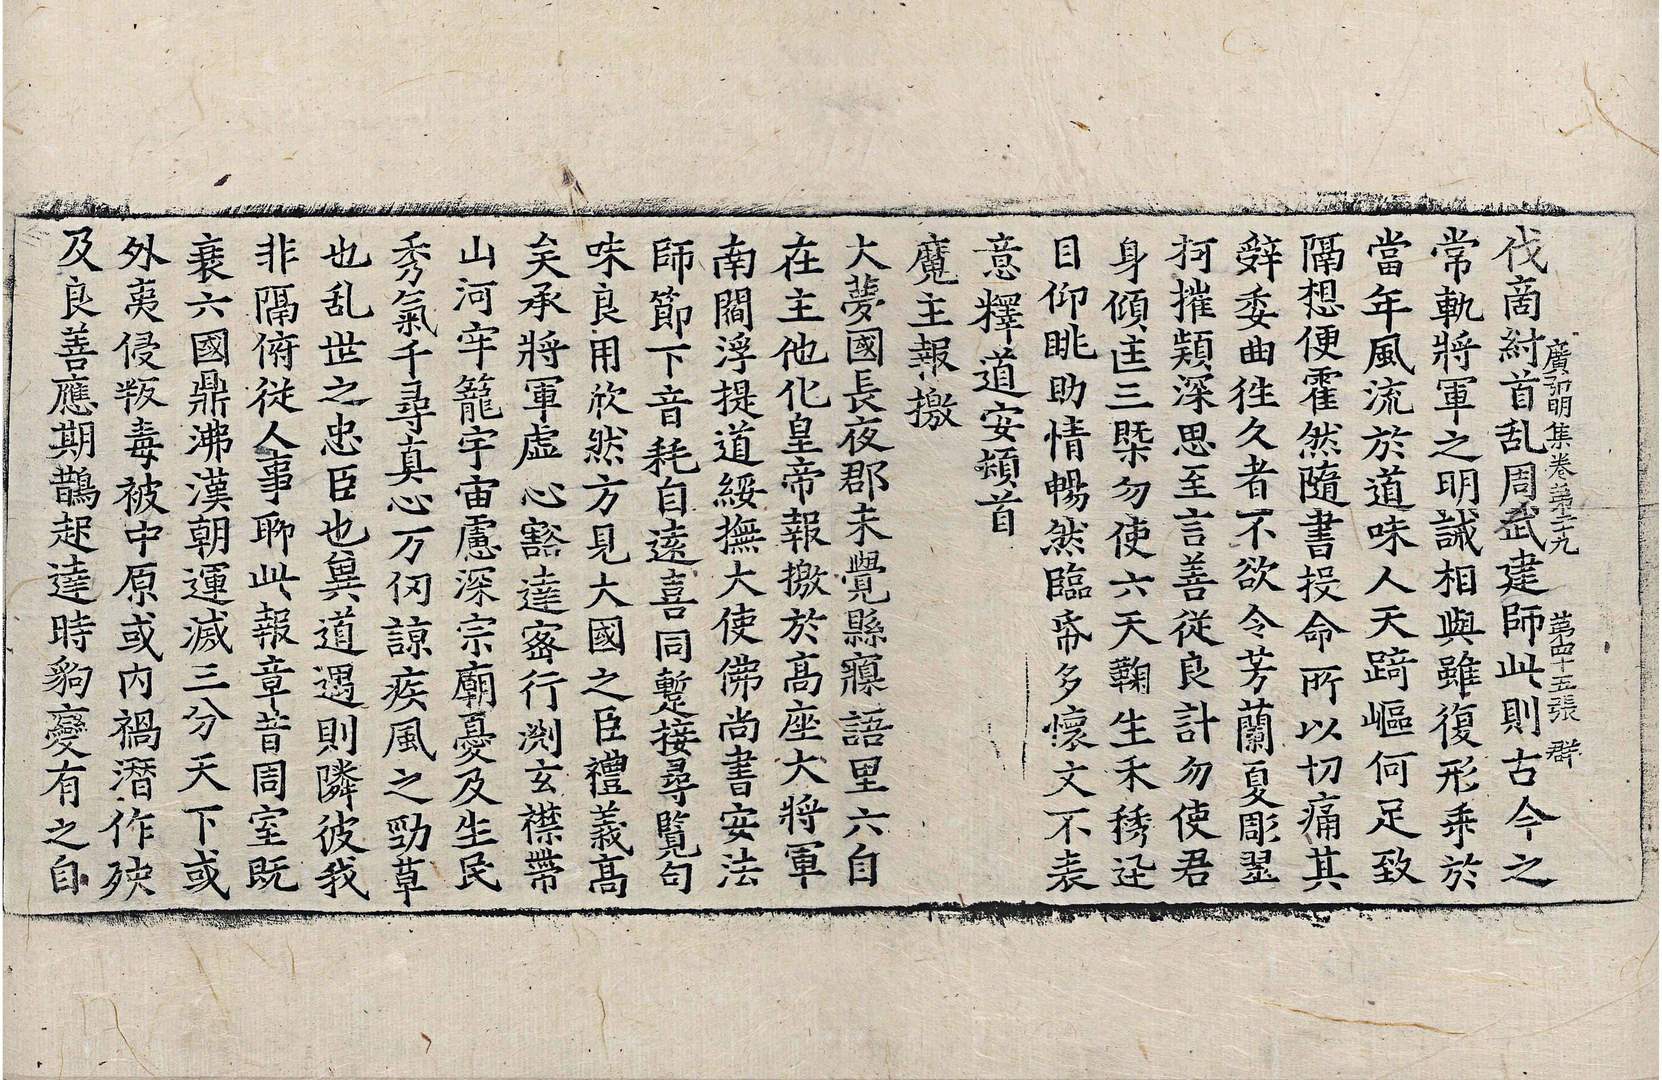 廣弘明集卷第二十九 第四十五張 群
伐商紂首乱周武建師此則古今之
常軌將軍之明誡相與雖復形乖於
當年風流於道味人天踦嶇何足致
隔想便霍然隨書投命所以切痛其
辭委曲往久者不欲令芳蘭夏彫翠
柯摧穎深思至言善從良計勿使君
身傾迬三槩勿使六天鞠生禾稊迋
目仰眺助情暢然臨帋多懷文不表
意釋道安頓首
魔主報檄
大夢國長夜郡未覺縣寱語里六自
在主他化皇帝報檄於高座大將軍
南閻浮提道綏撫大使佛尚書安法
師節下音耗自遠喜同蹔接尋覽句
味良用欣然方見大國之臣禮義高
矣承將軍虛心豁達密行渕玄襟帶
山河牢籠宇宙慮深宗廟憂及生民
秀氣千尋真心万仞諒疾風之勁草
也乱世之忠臣也異道遇則隣彼我
非隔俯從人事聊此報章昔周室既
衰六國鼎沸漢朝運滅三分天下或
外夷侵叛毒被中原或內禍潛作殃
及良善應期鵲起達時豹變有之自